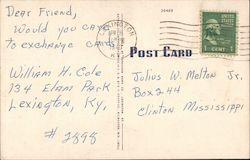 Dear Friend,
Would you care
to exchange cards
William H. Cole
134 Elam Park
Lexington, Ky.
# 2898
POST CARD
LEXINGTON
KY
UNITED STATES
POSTAGE
1 CENT
Julius W. Melton Jr.
Box 244
Clinton Mississippi